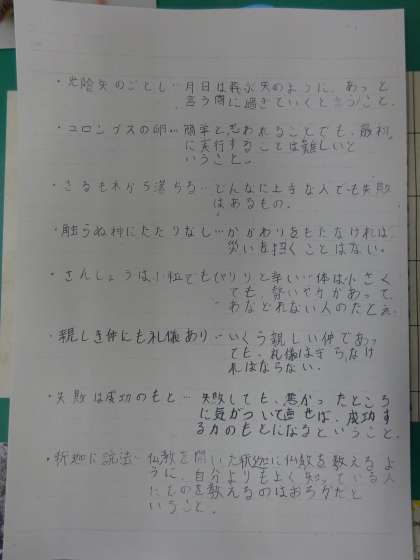 ・光陰矢のごとし…月日は飛ぶ矢のように、あっと
言う間に過ぎていくと言うこと。
・コロンブスの卵…簡単と思われることでも、最初
に実行することは難しいと
いうこと。
・さるも木から落ちる…どんなに上手な人でも失敗
はあるもの。
・触らぬ神にたたりなし…かかわりをもたなければ、
災いを招くことはない。
・さんしょうは小粒でもぴりりと辛い…体は小さく
ても、勢いや力があって、
あなどれない人のたとえ
・親しき仲にも礼儀あり…いくら親しい仲であっ
ても、礼儀は守らなけ
ればならない。
・失敗は成功のもと…失敗しても、悪かったところ
に気がついて直せば、成功す
る力のもとになるということ。
・釈迦に説法…仏教を開いた釈迦に仏教を教えるよ
うに、自分よりもよく知っている人
にものを教えるのはおろかだと
いうこと。